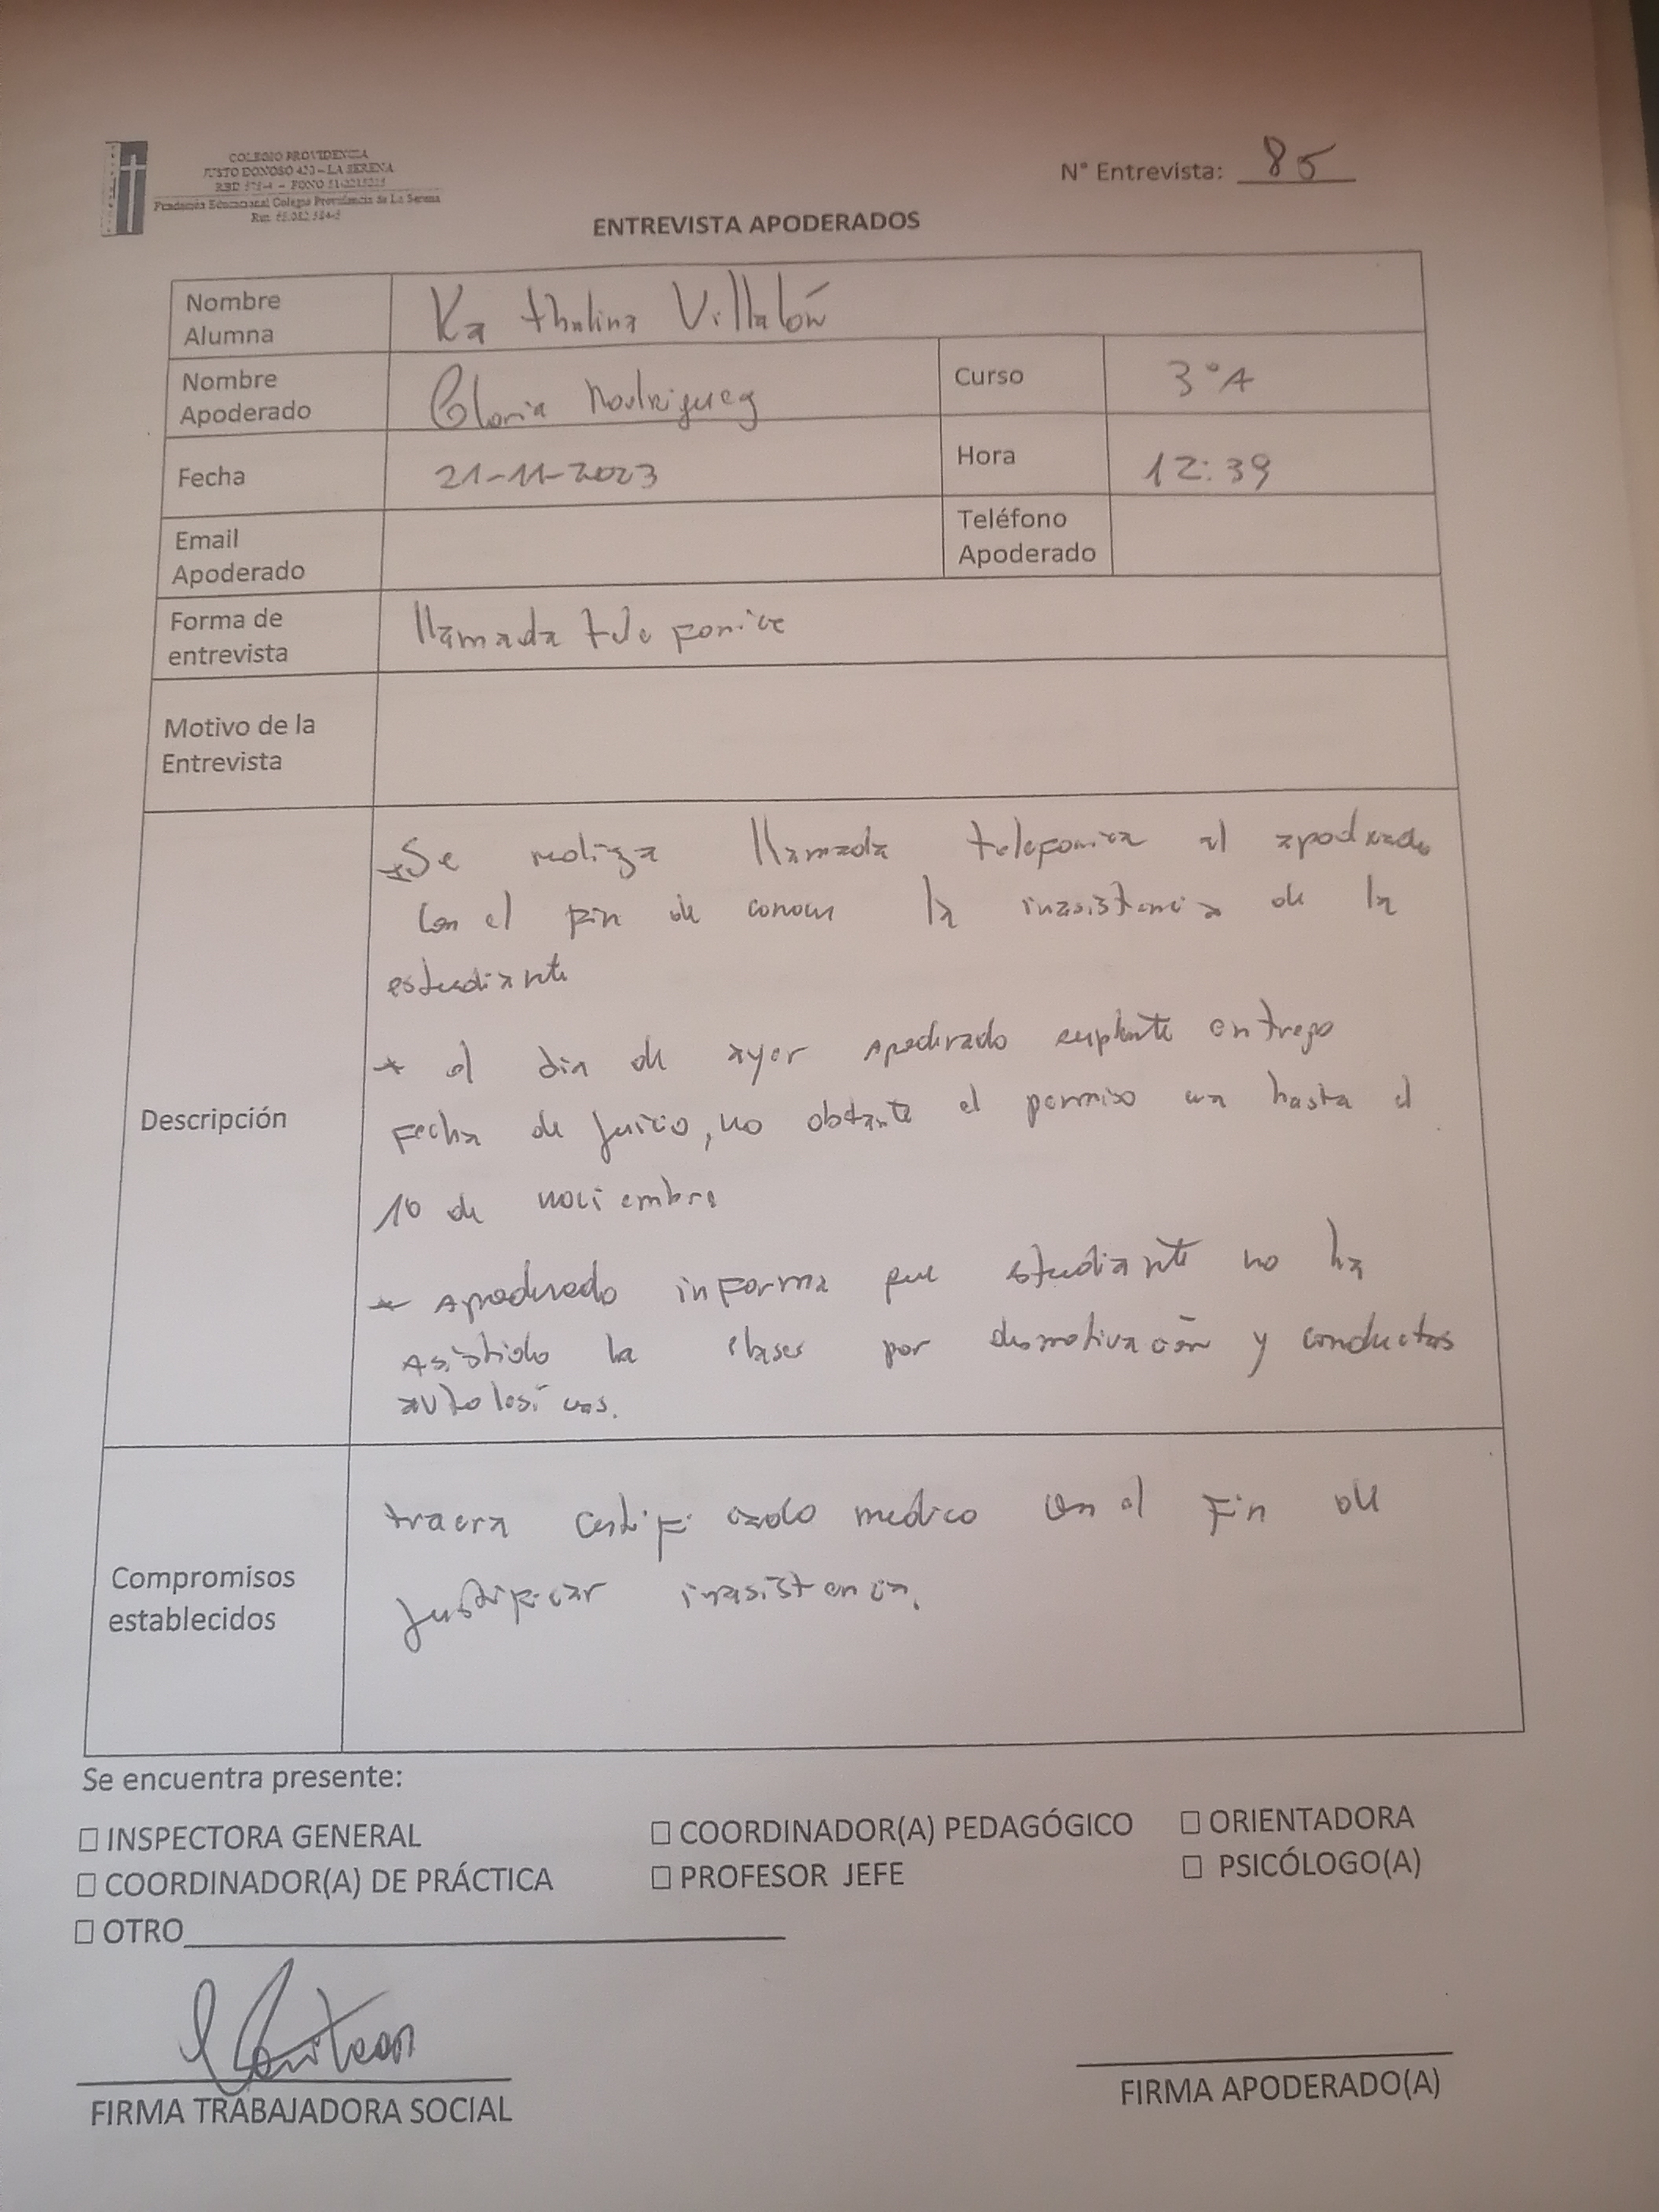 COLEGIO PROVIDENCIA
JUSTO DONOSO 420 – LA SERENA
Fundación Educacional Colegio Providencia de La Serena
N° Entrevista: 85
ENTREVISTA APODERADOS
Nombre Alumna Kathalina Villalón
Nombre Apoderado Gloria Rodriguez Curso 3°A
Fecha 21-11-2023 Hora 12:39
Email Apoderado Teléfono Apoderado
Forma de entrevista llamada telefonica
Motivo de la Entrevista
Descripción
*Se realiza llamada telefonica al apoderado
con el fin de conocer la inasistencia de la
estudiante
* el dia de ayer apoderado suplente entrego
fecha de juicio, no obstante el permiso era hasta el
10 de noviembre
* Apoderado informa que estudiante no ha
asistido ha clases por desmotivación y conductas
autolesivas.
Compromisos establecidos
traera certificado medico con el fin de
justificar inasistencia.
Se encuentra presente:
☐ INSPECTORA GENERAL ☐ COORDINADOR(A) PEDAGÓGICO ☐ ORIENTADORA
☐ COORDINADOR(A) DE PRÁCTICA ☐ PROFESOR JEFE ☐ PSICÓLOGO(A)
☐ OTRO
FIRMA TRABAJADORA SOCIAL FIRMA APODERADO(A)